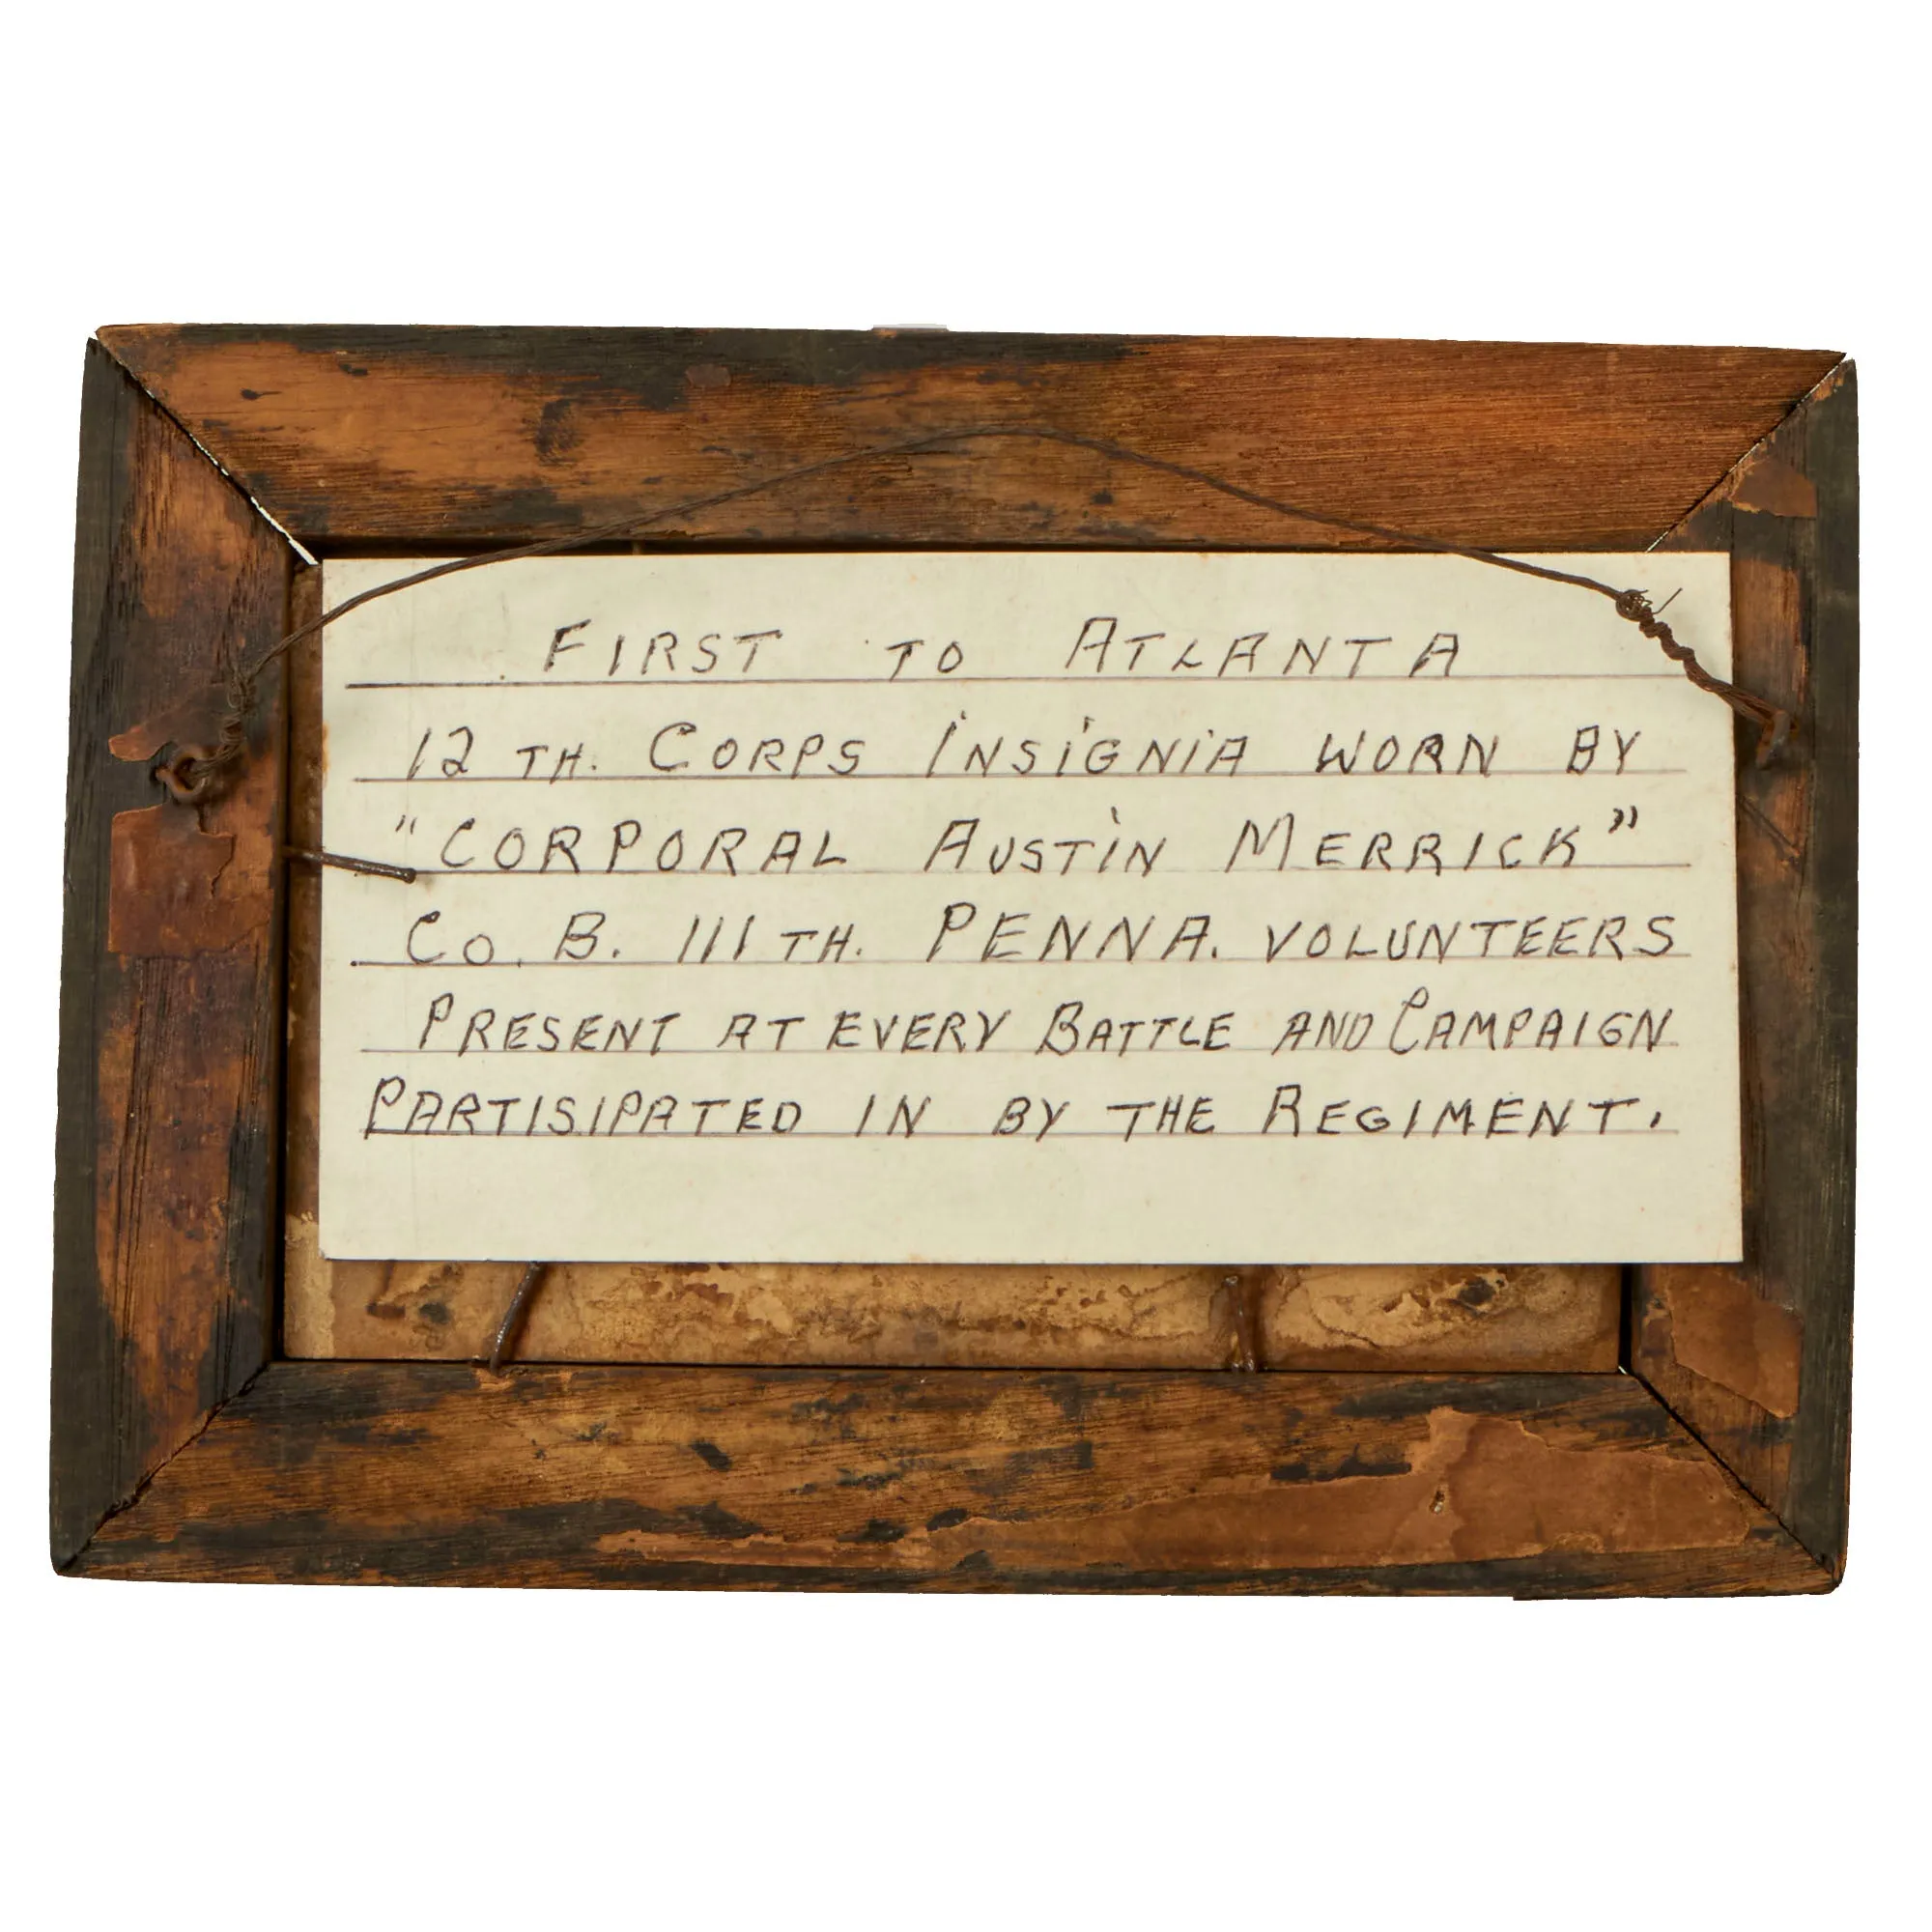 FIRST TO ATLANTA
12 TH. CORPS INSIGNIA WORN BY
"CORPORAL AUSTIN MERRICK"
CO. B. 111 TH. PENNA. VOLUNTEERS
PRESENT AT EVERY BATTLE AND CAMPAIGN
PARTISIPATED IN BY THE REGIMENT.